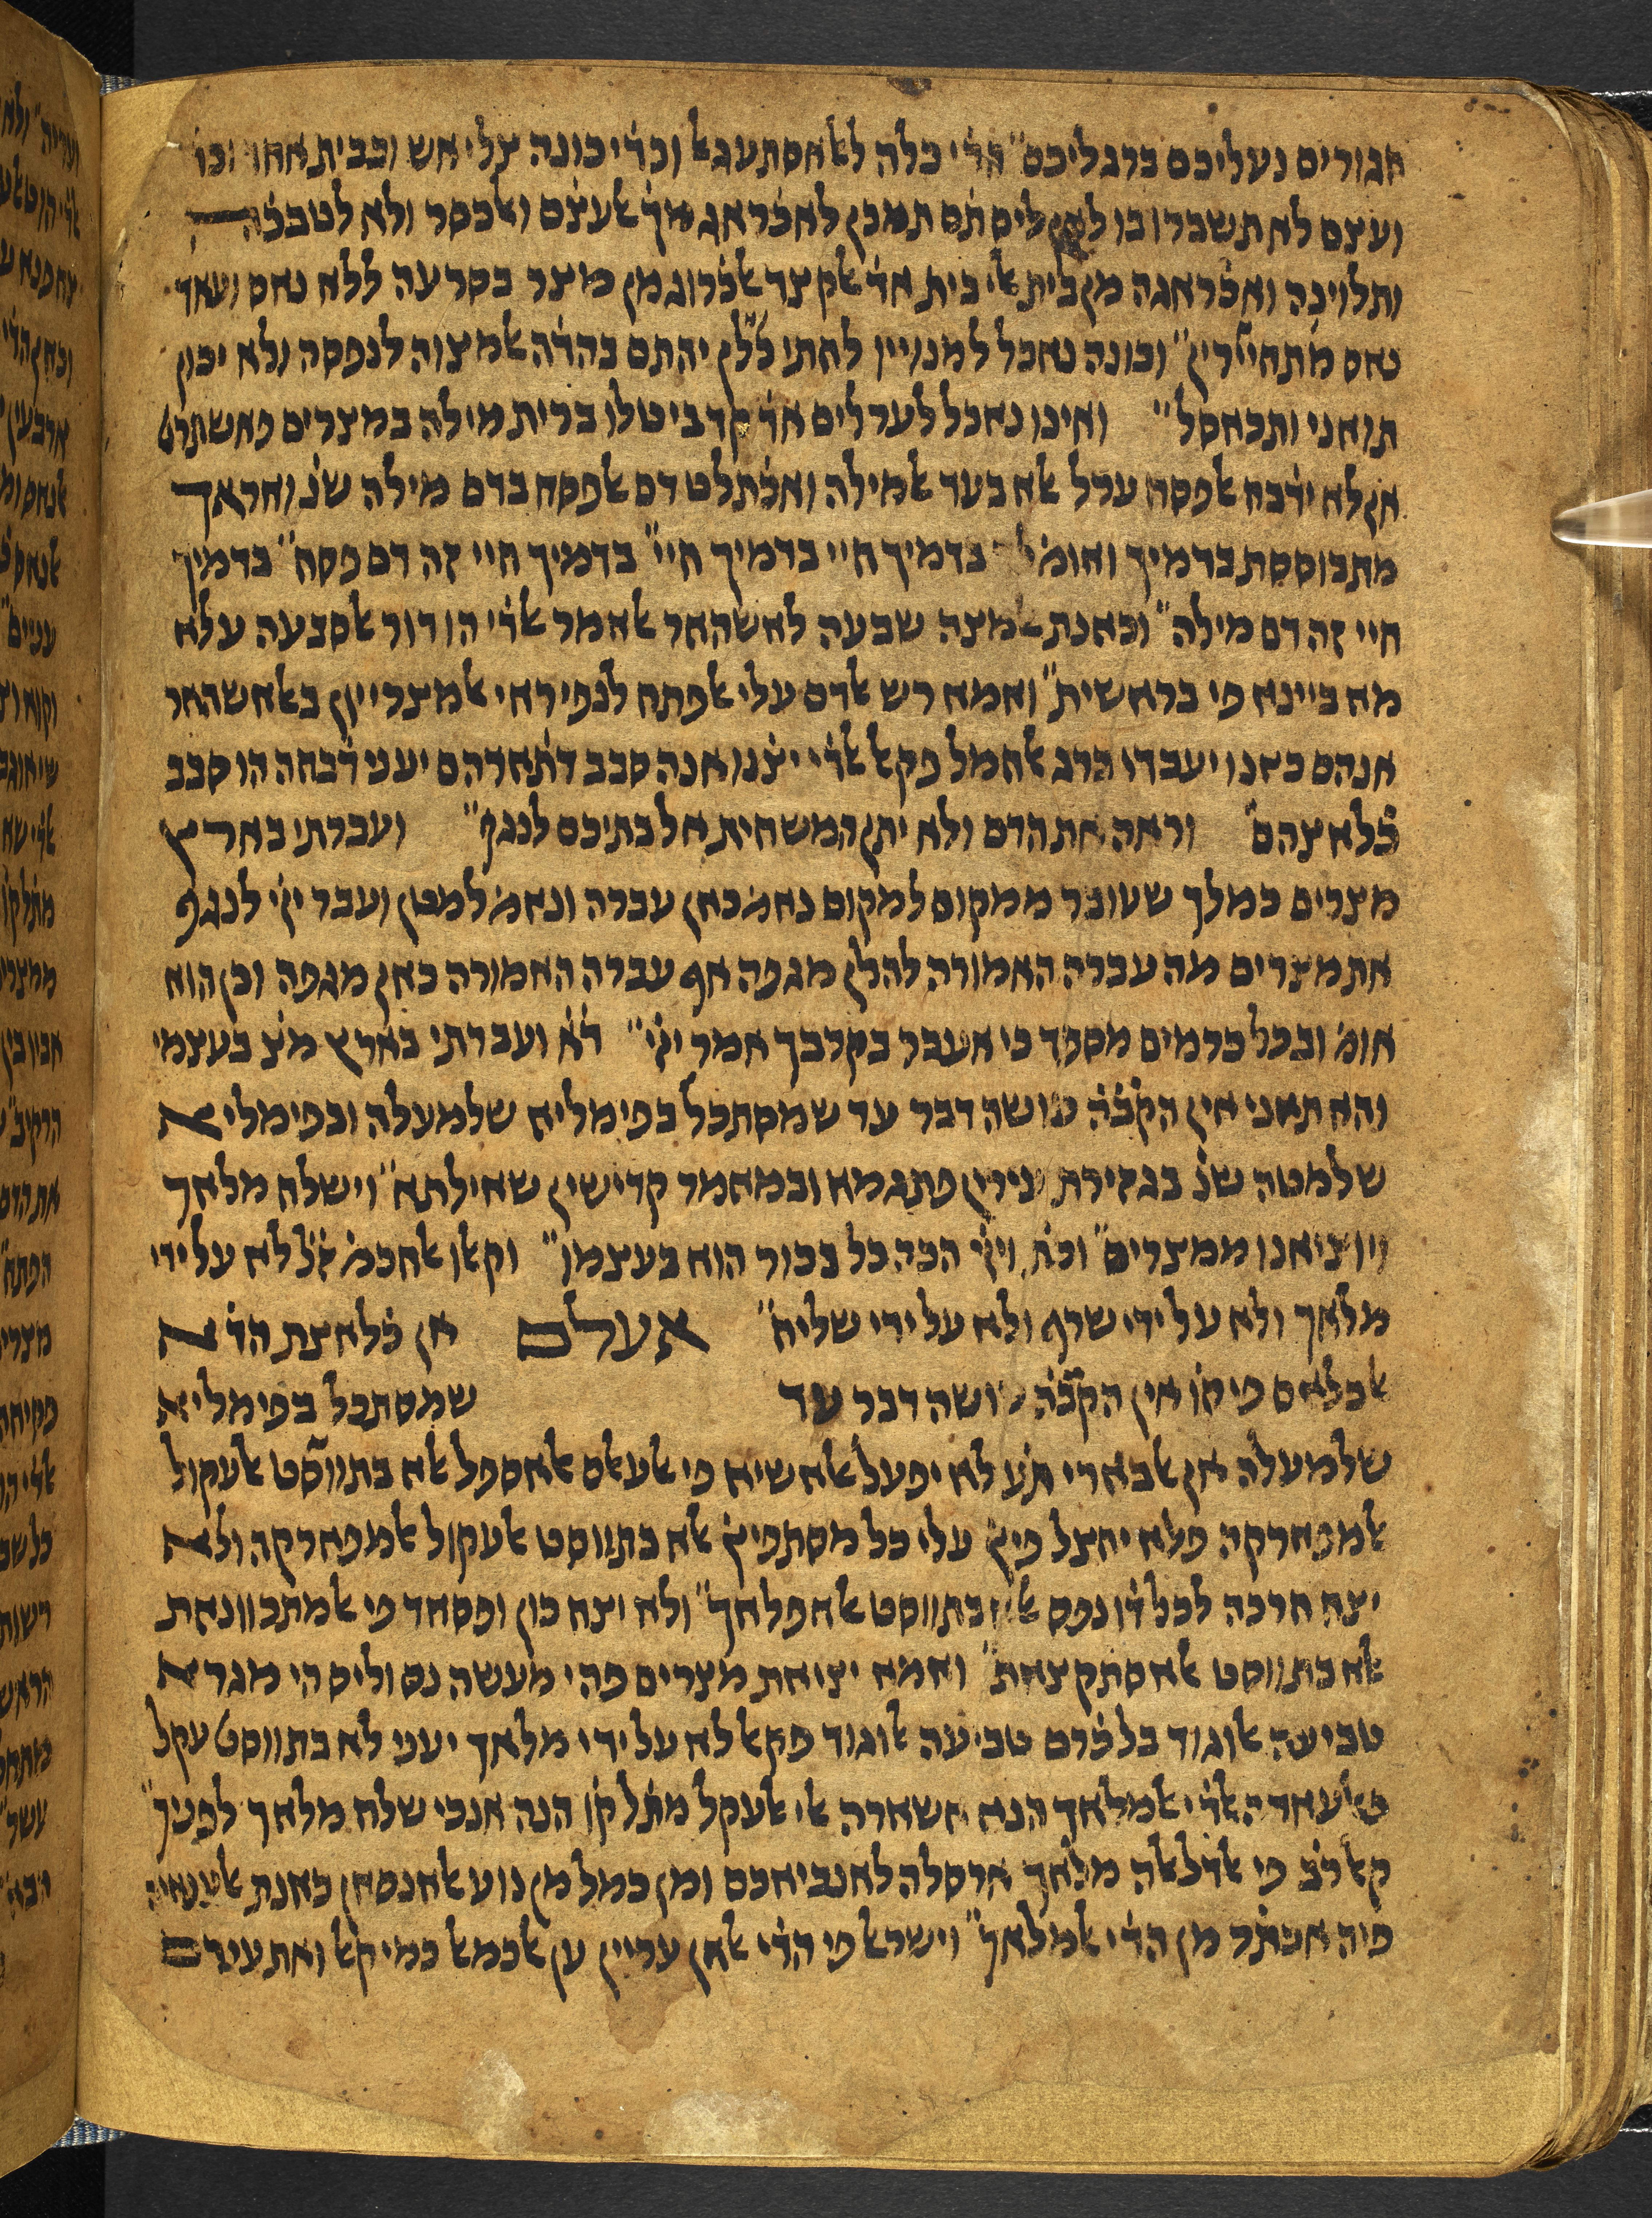 חגורים נעליכם ברגליכם״ הדׄי כלה ללאסתעגאל וכדׄי כונה צלי אש ובבית אחד וכו׳
ועצם לא תשברו בו לאן ליס תׄם תמכן לאכׄראג מךׄ אלעצׄם ואלכסר ולא לטבכׄה
ותלוינה ואכׄראגה מן בית אלי בית אדׄ אלקצד אלכׄרוג מן מצר בסרעה ללא נאס ועאד
נאס מתחיירין״ וכונה נאכל למנויין לחתי ללן יהתם בהדׄה אלמצוה לנפסה ולא יכון
תואני ותכאסל״ ואינו נאכל לערלים אדׄ קד ביטלו ברית מילה במצרים פאשתרט
אן לא ידׄבח אלפסח ערל אלא בעד אלמילה ואכׄתלט דם אלפסח בדם מילה שנ׳ ואראך
מתבוססת בדמיך ואומ׳ לך בדמיך חיי בדמיך חיי״ בדמיך חיי זה דם פסח״ בדמיך
חיי זה דם מילה״ וכאנת אלמצה שבעה לאשהאר אלאמר אלדׄי הו דור אלסבעה עלא
מא ביינא פי בראשית״ ואמא רש אלדם עלי אלפתח לנפי ראי אלמצריין באלאשהאר
אנהם כאנו יעבדו ברג אלחמל פקאל אלדׄי יצׄנו אנה סבב דתׄארהם יעני דׄבחה הו סבב
כׄלאצהם״ וראה את הדם ולא יתן המשחית אל בתיכם לנגף״ ועברתי בארץ
מצרים כמלך שעובר ממקום למקום נאמ׳ כאן עברה ונאמ׳ למטן ועבר ייי לנגף
את מצרים מה עברה האמורה להלן מגפה אף עברה האמורה כאן מגפה וכן הוא
אומ׳ ובכל כרמים מספד כי אעבר בקרבך אמר ייי״ דׄא ועברתי בארץ מצ׳ בעצמי
והא תאני אין הקבׄה עושה דבר עד שמסתכל בפימליא שלמעלה ובפימליא
שלמטה שנ׳ בגזירת עירין פתגמא ובמאמר קדישין שאילתא״ וישלח מלאך
ויוציאנו ממצרים״ וכת׳ וייי הכה כל בכור הוא בעצמו״ וקאלו אלחכמ׳ זׄל לא על ידי
מלאך ולא על ידי שרף ולא על ידי שליח״ אעלם אן כׄלאצת הדׄא
אלכלאם פי קו׳ אין הקבׄה עושה דבר עד שמסתכל בפימליא
שלמעלה אן אלבארי תׄע לא יפעל אלא שיא פי אלעאלם אלאספל אלא בתווסט אלעקול
אלמפארקה פלא יחצל פיץׄ עלי כל מסתפיץׄ אלא בתווסט אלעקול אלמפארקה ולא
יצח חרכה לכל דׄו נפס אלא בתווסט אלאפלאך״ ולא יצח כון ופסאד פי אלמתכוונאת
אלא בתווסט אלאסתקצאת״ ואמא יציאת מצרים פהי מעשה נס וליס הי מגרא
טביעה אלוגוד בל כׄרם טביעה אלוגוד פקאל לא על ידי מלאך יעני לא בתווסט עקל
אלמלאך הנא אשארה אלי אלעקל מתׄל קו׳ הנה אנכי שלח מלאך לפניך״
קאל רבׄ פי אלדלאלה מלאך ארסלה לאנביאכם ומן כמל מן נוע אלאנסאן כאנת
פיה אכתׄר מן הדׄי אלמלאך״ וישראל פי הדׄי אלאן עריין ען אלכמאל כמי קאל ואת עירם